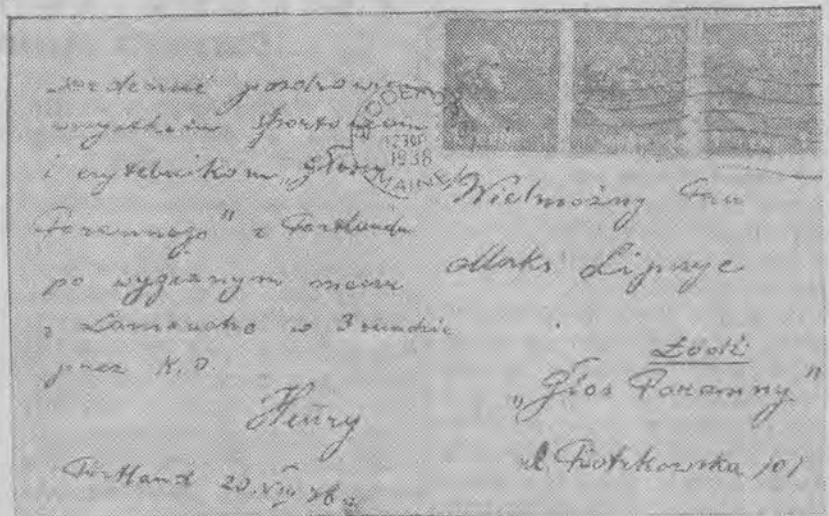 Serdeczne pozdrowienia
wszystkim sportowcom
i czytelnikom „Głosu
Porannego" z Portlandu
po wygranym meczu
z w 3 rundzie
przez K.O.
Henry
Portland 20.VIII
1938
Wielmożny Pan
Maks Lipszyc
Łódź
„Głos Poranny"
ul. Piotrkowska 101